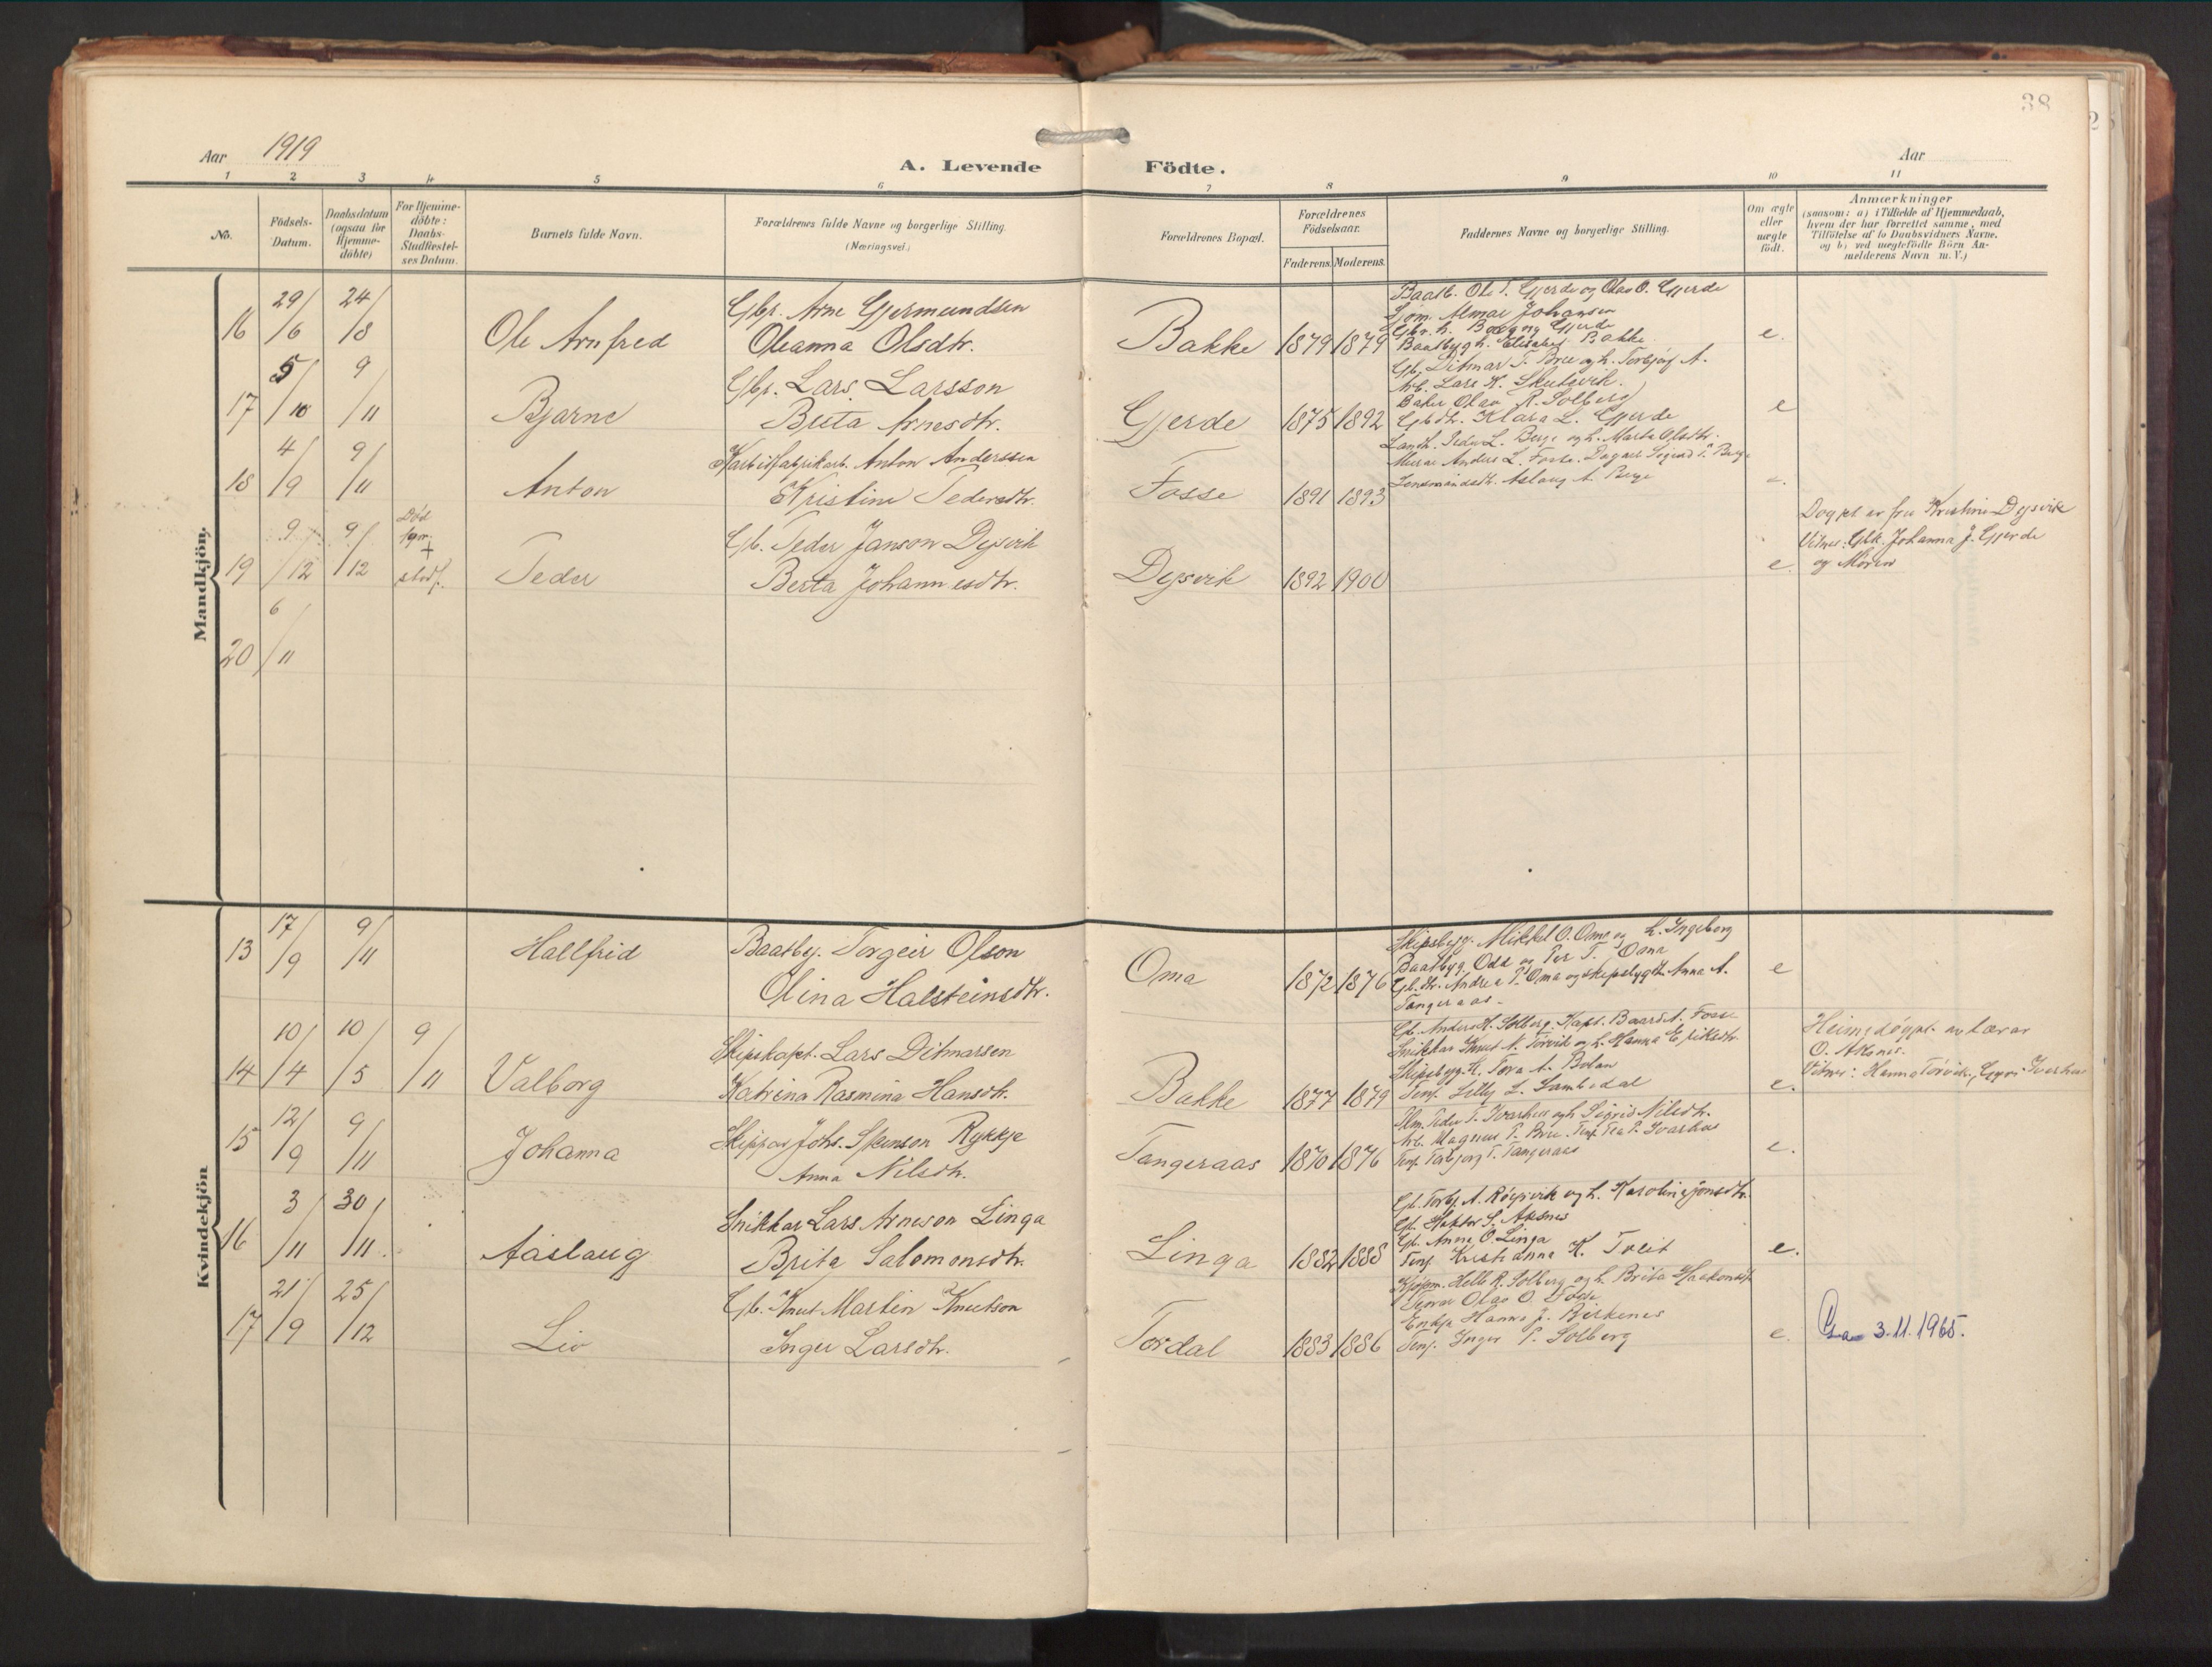 38
Aar 1919
A. Levende Födte.
Aar
1 2 3 4 5 6 7 8 9 10 11
No.
Födsels-Datum.
Daabsdatum (ogsaa for Hjemme-döbte)
For Hjemme-döbte: Daabs-Stadfæstel-ses Datum.
Barnets fulde Navn.
Forældrenes fulde Navne og borgerlige Stilling.
(Næringsvei.)
Forældrenes Bopæl.
Forældrenes Födselsaar.
Faderens. Moderens.
Faddernes Navne og borgerlige Stilling.
Om ægte eller uægte födt.
Anmærkninger
(saasom: a) i Tilfælde af Hjemmedaab,
hvem der har forrettet samme, med
Tilföielse af to Daabsvidners Navne.
og b) ved uægtefödte Börn An-
melderens Navn m. V.)
Mandkjön.
16 29/6 24/8 Ole Arnfred
Gbr. Arne Gjermundsen
Oleanna Olsdtr.
Bakke 1879 1879
Baatb. Ole T. Gjerde og Olav O. Gjerde
Sjöm. Almar Johansen
Gbr. h. Gjerde
Baatbyg h. Elisabet Bakke
e.
17 5/10 9/11 Bjarne
Gbr. Lars Larsson
Berta Arnesdtr.
Gjerde 1875 1892
Gb. Ditmar T. Bree og h. Torbjörg A.
Arb. Lars K. Skutevik.
Baker Olav R. Solberg
Gbdtr. Klara L. Gjerde
e
18 4/9 9/11 Anton
Karbidfabrikarb. Anton Anderssen
Kristine Pedersdtr.
Fosse 1891 1893
Landh. Peder L. Berge og h. Marta Olsdtr.
Murar Anders L. Fosse.
Lensmandsdtr. Aslaug A. Berge
e.
19 9/12 9/12 Död fyr + stadf. Peder
Gb. Peder Janson Dysvik
Berta Johannesdtr.
Dysvik 1892 1900
e.
Döypt av fru Kristine Dysvik
Vitner: Gbk. Johanna J. Gjerde
og Moren
20 6/11
Kvindekjön
13 17/9 9/11 Hallfrid
Baatby. Torgeir Olson
Olina Halsteinsdtr.
Oma 1872 1876
Skipsbyg. Mikkel O. Oma og h. Ingeborg
Baatbyg. Odd og Per T. Oma
Gb.dtr. Andrea P. Oma og skipsbygdt. Anna A.
Tangeraas.
e
14 10/4 10/5 9/11 Valborg
Skipskapt. Lars Ditmarsen
Katrina Rasmina Hansdtr.
Bakke 1877 1879
Gb. Anders H. Solberg. Kapt. Baard A. Fosse
Snikkar Knut N. Torvik og h. Hanna Eriksdtr.
Skipsbyg.k. Tora A. Bolan
Tenj. Lilly L. Sambedal
e.
Heimedöypt av lærar
O. Aksnes.
Vitner: Hanna Torvik, Gyri Ivarhus
15 12/9 9/11 Johanna
Skippar Johs. Steinson Rykkje
Anna Nilsdtr.
Tangeraas 1870 1876
Peder T. Ivarhus og h. Sigrid Nilsdtr.
Arb. Magnus P. Bree. Tenj. Tea P. Ivarhus
Tenj. Torbjörg T. Tangeraas
e.
16 3/11 30/11 Aaslaug
Snikkar Lars Arneson Linga
Brita Salomonsdtr.
Linga 1882 1888
Gb. Torbj. A. Röysvik og h. Karolina Jonsdtr.
Gb. Haktor S. Aksnes
Gb. Anna O. Linga
Tenj. Kristianna K. Tveit
e.
17 21/9 25/12 Liv
Gb. Knut Martin Knutson
Inger Larsdtr.
Tordal 1883 1886
Kjöpm. Helle R. Solberg og h. Brita Haakonsdt.
Olav O.
Enkje Hanna J. Birkenes
Tenj. Inger P. Solberg
e.
3.11.1965.